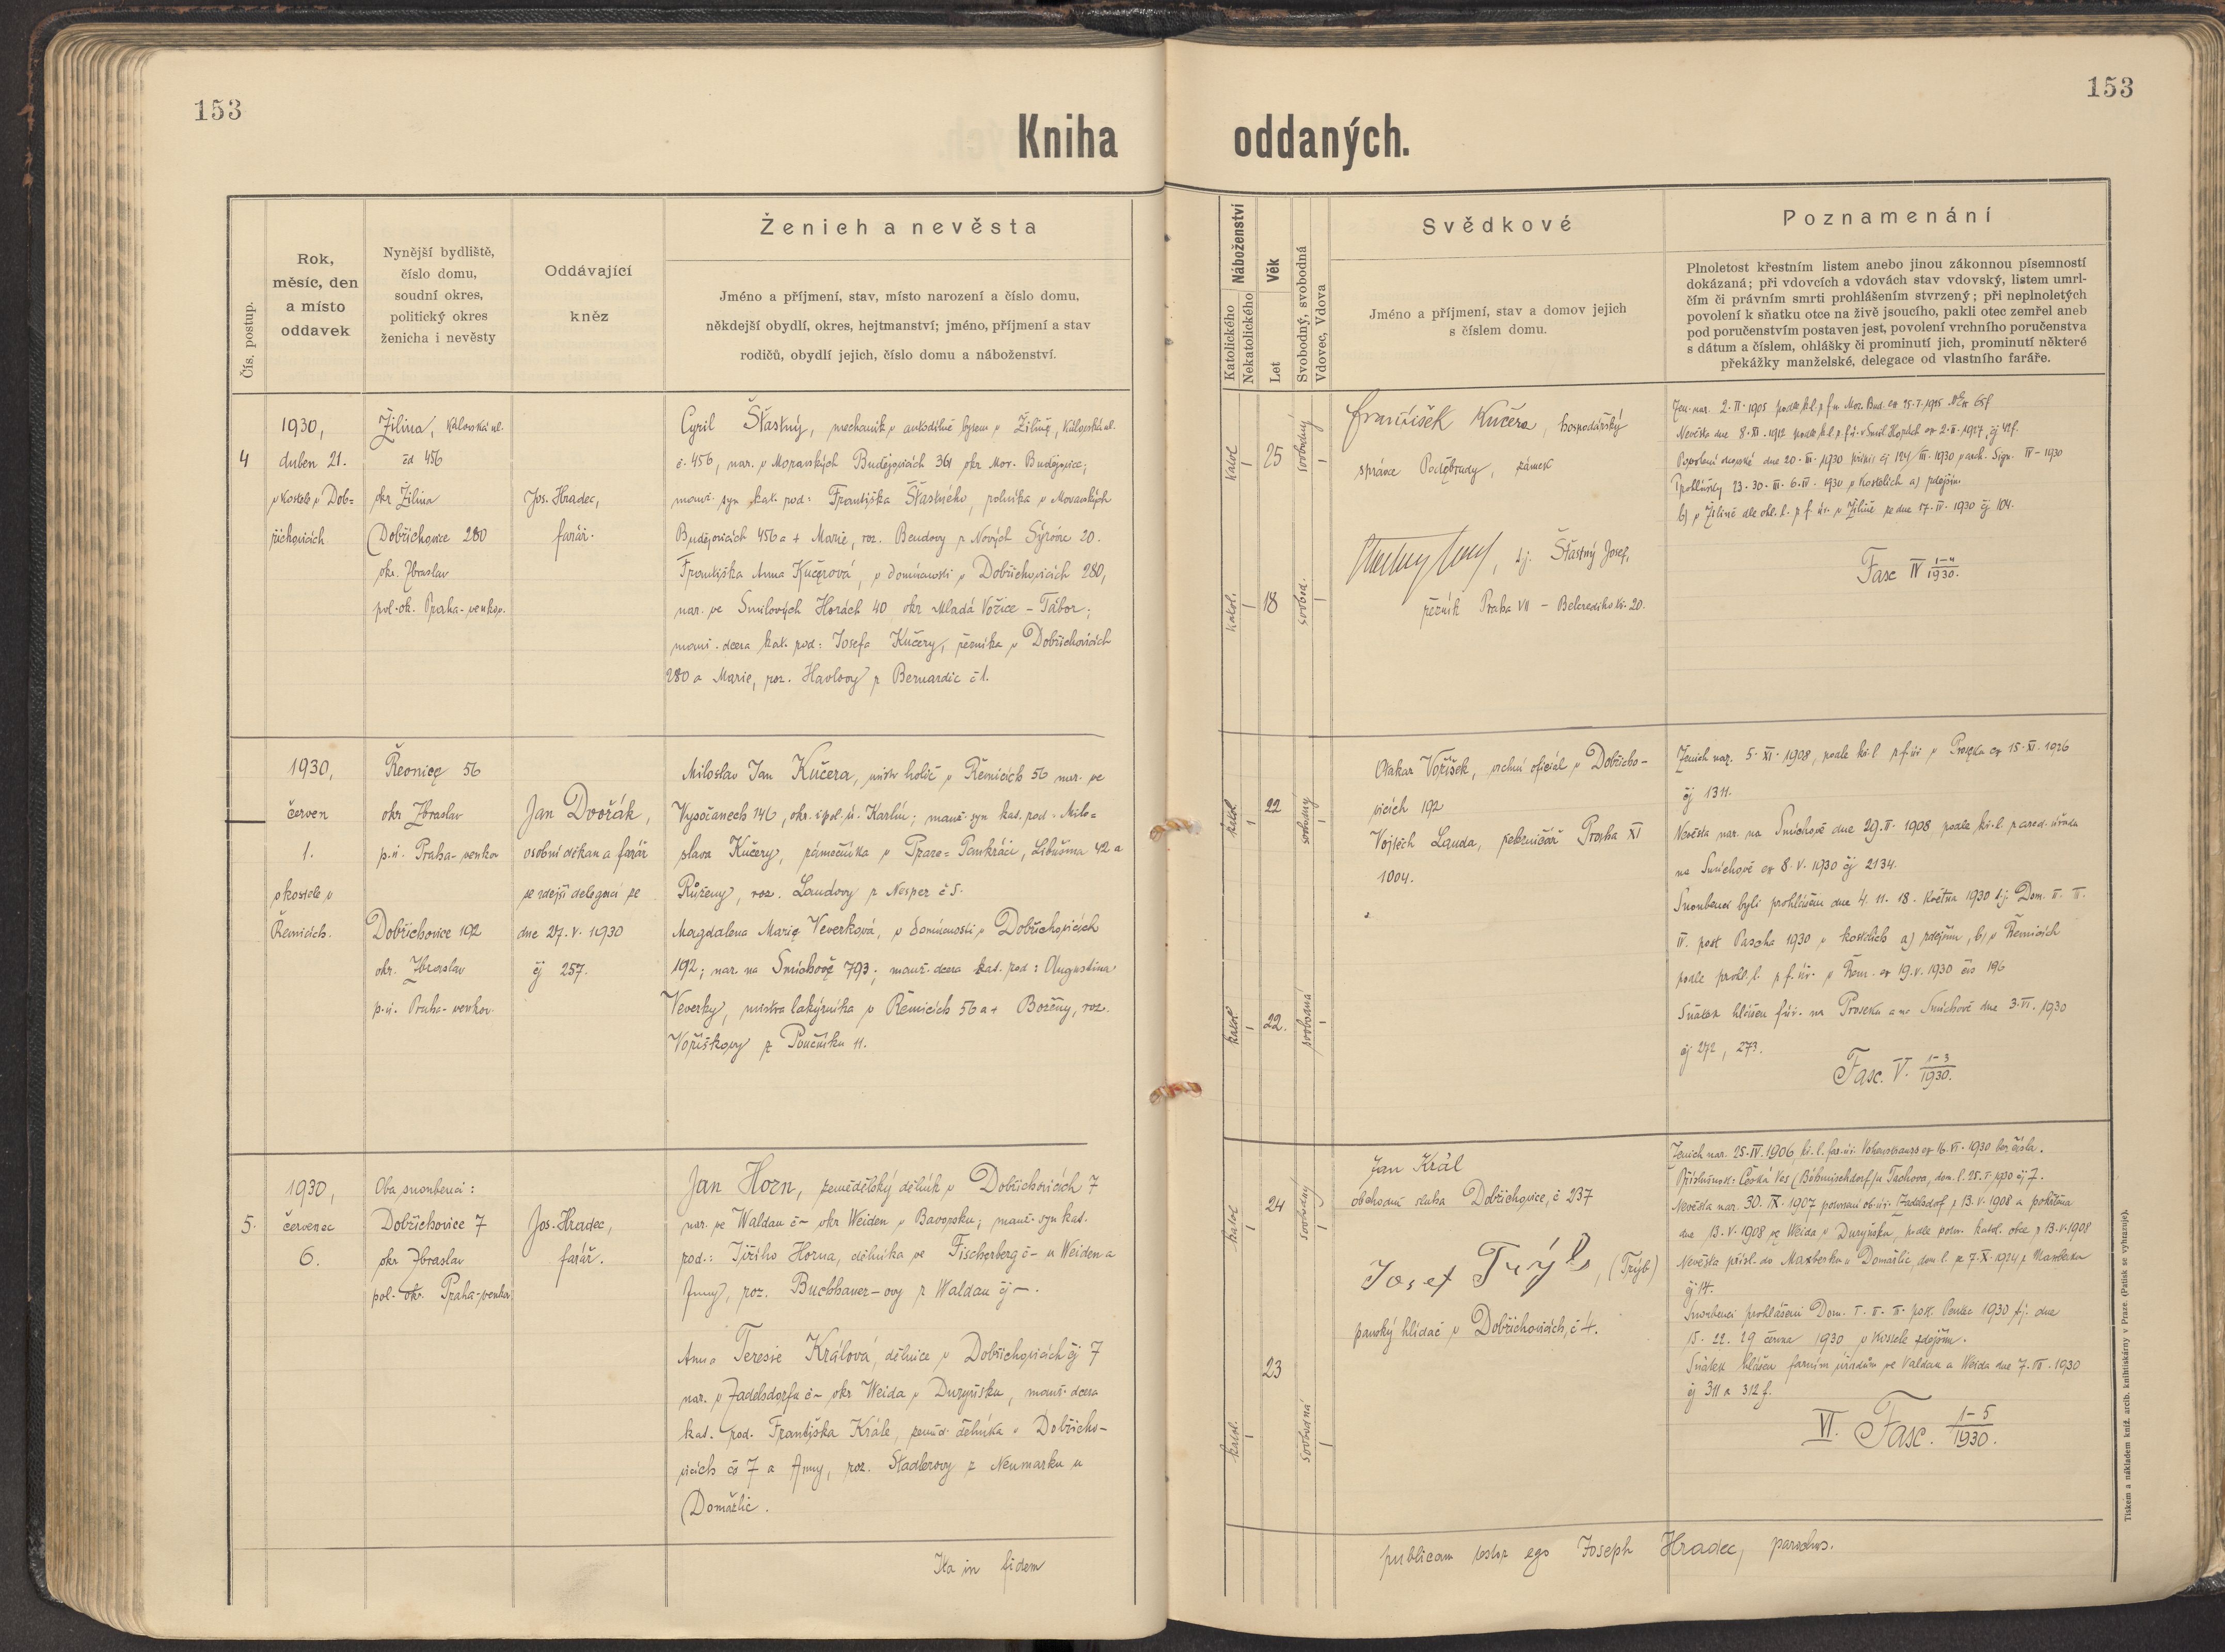 153
153
Kniha oddaných.
Čís. postup.
Rok,
měsíc, den
a místo
oddavek
Nynější bydliště,
číslo domu,
soudní okres,
politický okres
ženicha i nevěsty
Oddávající
kněz
Ženich a nevěsta
Jméno a příjmení, stav, místo narození a číslo domu,
někdejší obydlí, okres, hejtmanství; jméno, příjmení a stav
rodičů, obydlí jejich, číslo domu a náboženství.
Náboženství
Katolického
Nekatolického
Věk
Let
Svobodný, svobodná
Vdovec, Vdova
Svědkové
Jméno a příjmení, stav a domov jejich
s číslem domu.
Poznamenání
Plnoletost křestním listem anebo jinou zákonnou písemností
dokázaná; při vdovcích a vdovách stav vdovský, listem umrl-
čím či právním smrti prohlášením stvrzený; při neplnoletých
povolení k sňatku otce na živě jsoucího, pakli otec zemřel aneb
pod poručenstvím postaven jest, povolení vrchního poručenstva
s dátum a číslem, ohlášky či prominutí jich, prominutí některé
překážky manželské, delegace od vlastního faráře.
4
1930,
duben 21.
v kostele v Dob=
řichovicích
Žilina,
čd 456
okr Žilina
Dobřichovice 280
okr. Zbraslav
pol. ok. Praha-venkov.
Jos. Hradec,
farář.
Cyril Šťastný, mechanik v autodílně bytem v Žilině,
č. 456, nar. v Moravských Budějovicích 361 okr Mor. Budějovice;
manž. syn kat. rod: Františka Šťastného, rolníka v Moravských
Budějovicích 456 a + Marie, roz. Bendovy z Nových Syrovic 20.
Františka Anna Kučerová, v domácnosti v Dobřichovicích 280,
nar. ve Smilových Horách 40 okr Mladá Vožice - Tábor;
manž. dcera kat. rod: Josefa Kučery, řezníka v Dobřichovicích
280 a Marie, roz. Havlovy z Bernardic č 1.
katol
1
25
svobodný
1
katol.
1
18
svobod.
1
František Kučera, hospodářský
správce Poděbrady, zámek
tj. Šťastný Josef,
řezník Praha VII - Belcrediho tř. 20.
Žen. nar. 2. II. 1905
Nevěsta dne 8. XI. 1912
23. 30. III. 6. IV. 1930 v kostelích a) zdejším
b) v Žilině dle ohl. l. z f. úř. v Žilině ze dne 17. IV. 1930 čj 104.
Fasc IV 1-4/1930.
1930,
červen
1.
v kostele v
Řevnicích.
Řevnice 56
okr Zbraslav
p.ú. Praha-venkov
Dobřichovice 192
okr. Zbraslav
p.ú. Praha-venkov.
Jan Dvořák,
osobní děkan a farář
se zdejší delegací ze
dne 27. V. 1930
čj 257.
Miloslav Jan Kučera, mistr holič v Řevnicích 56 nar. ve
Vysočanech 146, okr. i pol. ú. Karlín; manž. syn kat. rod. Milo=
slava Kučery, zámečníka v Praze=Pankráci, Libušina 42 a
Růženy, roz. Laudovy z Nesper č 5.
Magdalena Marie Veverková, v domácnosti v Dobřichovicích
192; nar. na Smíchově 793; manž. dcera kat. rod: Augustina
Veverky, mistra lakýrníka v Řevnicích 56 a + Boženy, roz.
Voříškovy z
katol
1
22
svobodný
1
katol
1
22.
svobodná
1
Otakar Voříšek, vrchní oficiál v Dobřicho-
vicích 192
Vojtěch Lauda, železničář Praha XI
1004.
Ženich nar. 5. XI. 1908, podle kř. l z f. úř v Proseka
čj 1311.
Nevěsta nar. na Smíchově dne 29. II. 1908, podle kř. l.
na Smíchově 8. V. 1930 čj 2134.
Snoubenci byli prohlášeni dne 4. 11. 18. května 1930 t.j. Dom. II. III.
IV. post Pascha 1930 v kostelích a) zdejším, b) v Řevnicích
podle prohl. l. z f. úř. v Řevn. 19. V. 1930 čís 196
Sňatek hlášen f. úř. na Proseku a na Smíchově dne 3. VI. 1930
čj 272, 273.
Fasc. V. 1-3/1930.
5.
1930,
červenec
6.
Oba snoubenci:
Dobřichovice 7
okr Zbraslav
pol. okr. Praha-venkov
Jos. Hradec,
farář.
Jan Horn, zemědělský dělník v Dobřichovicích 7
nar. ve Waldau č - okr Weiden v Bavorsku; manž. syn kat.
rod.: Jiřího Horna, dělníka ve Fischerberg č - u Weiden a
Anny, roz. Buchbauer-ovy z Waldau čj -.
Anna Teresie Králová, dělnice v Dobřichovicích čj 7
nar. v Zadelsdorfu č - okr Weida v Durynsku, manž. dcera
kat. rod. Františka Krále, zeměd. dělníka v Dobřicho-
vicích čs 7 a Anny, roz. Stadlerovy z Neumarku u
Domažlic.
katol
1
24
svobodný
1
katol.
1
23
svobodná
1
Jan Král
obchodní sluha Dobřichovice, č 237
Josef Trýb, (Trýb)
panský hlídač v Dobřichovicích, č 4.
Ženich nar. 25. IV. 1906, kř. l. far. úř. 16. VI. 1930 bez čísla.
Příslušnost: Česká Ves (Böhmischdorf) u Tachova, dom. l.
Nevěsta nar. 30. IX. 1907 13. V. 1908 a pokřtěna
dne 13. V. 1908 ve Weida v Durynsku, podle 13. V. 1908
Nevěsta přísl. do Maxberku u Domažlic, dom l. ze 7. X. 1924 z Maxberku
čj 14.
Snoubenci prohlášeni Dom. I. II. III. post. Pentec 1930 t.j. dne
15. 22. 29 června 1930 v kostele zdejším.
Sňatek hlášen farním úřadům ve Valdau a Weida dne 7. VII. 1930
čj 311 a 312 f.
VI. Fasc. 1-5/1930.
Ita in fidem
publicam testor ego Joseph Hradec, parochus.
Tiskem a nákladem kníž. arcib. knihtiskárny v Praze. (Patisk se vyhrazuje).